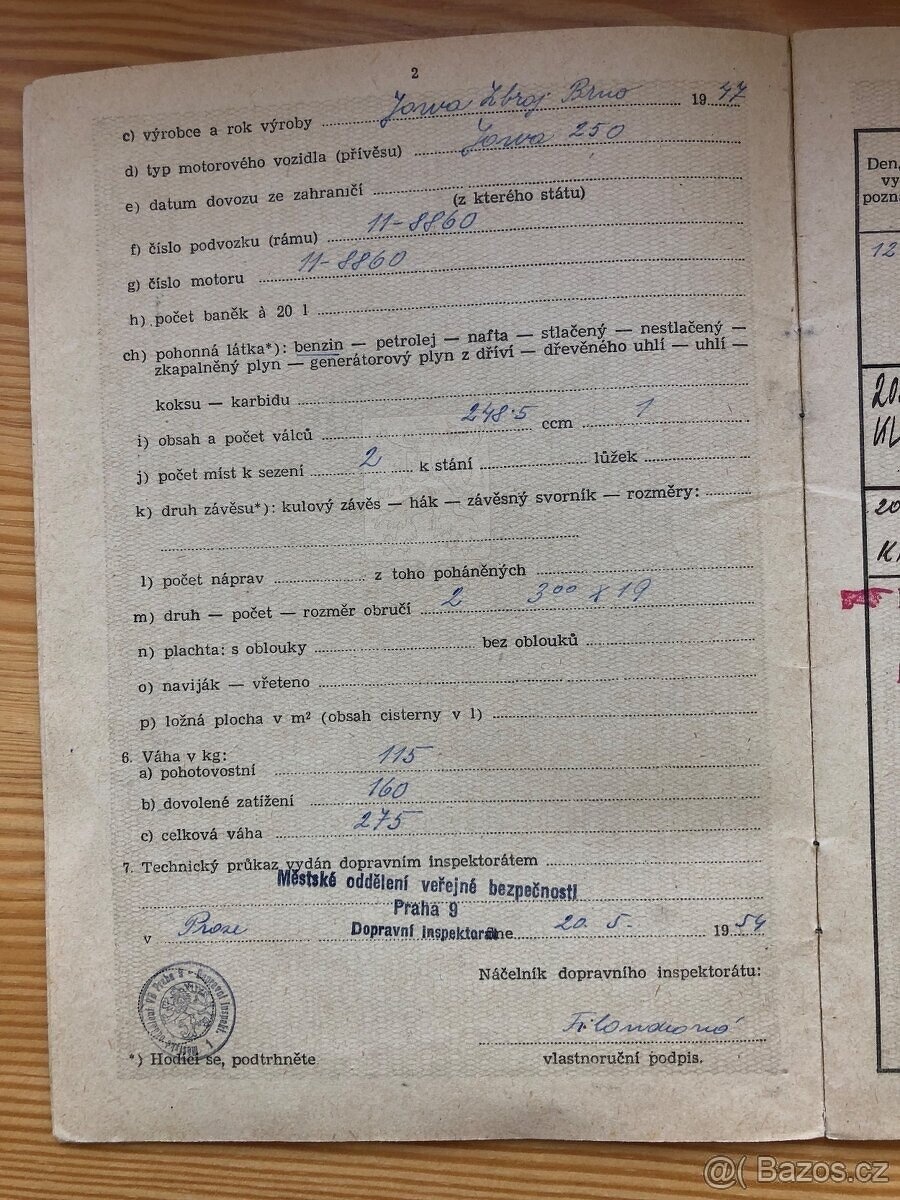 2
c) výrobce a rok výroby Jawa Zbroj Brno 19 47
d) typ motorového vozidla (přívěsu) Jawa 250
e) datum dovozu ze zahraničí
(z kterého státu)
f) číslo podvozku (rámu) 11-8860
g) číslo motoru 11-8860
h) počet baněk à 20 l
ch) pohonná látka*): benzin — petrolej — nafta — stlačený — nestlačený —
zkapalněný plyn — generátorový plyn z dříví — dřevěného uhlí — uhlí —
koksu — karbidu
i) obsah a počet válců 248·5 ccm 1
j) počet míst k sezení 2 k stání lůžek
k) druh závěsu*): kulový závěs — hák — závěsný svorník — rozměry:
l) počet náprav z toho poháněných
m) druh — počet — rozměr obručí 2 3⁰⁰ x 19
n) plachta: s oblouky bez oblouků
o) naviják — vřeteno
p) ložná plocha v m² (obsah cisterny v l)
6. Váha v kg:
a) pohotovostní 115
b) dovolené zatížení 160
c) celková váha 275
7. Technický průkaz vydán dopravním inspektorátem
Městské oddělení veřejné bezpečnosti
Praha 9
Dopravní inspektorát
v Praze dne 20. 5. 19 54
Náčelník dopravního inspektorátu:
vlastnoruční podpis.
*) Hodící se, podtrhněte
Den,
vy
pozna
12
20.
20
@( Bazos.cz